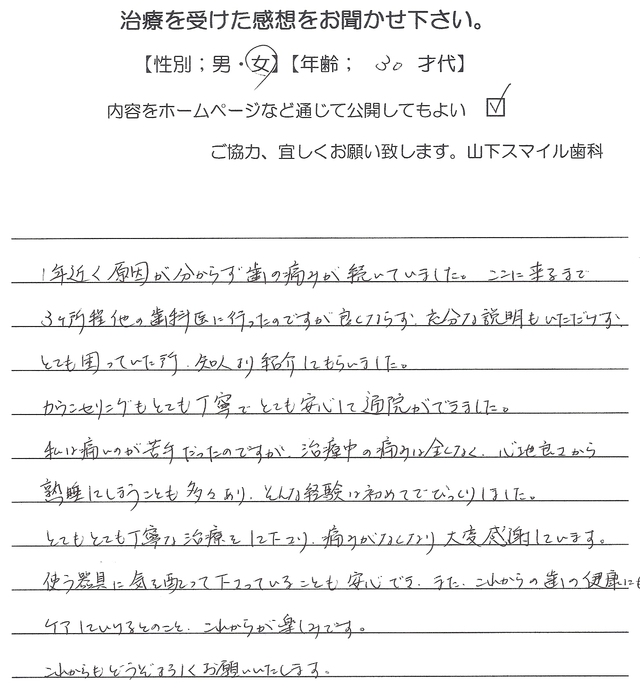 治療を受けた感想をお聞かせ下さい。
【性別；男・女】【年齢； 30 才代】
内容をホームページなど通じて公開してもよい ☑
ご協力、宜しくお願い致します。山下スマイル歯科
1年近く原因が分からず歯の痛みが続いていました。ここに来るまで
3ヶ所程他の歯科医に行ったのですが良くならず、充分な説明もいただけず、
とても困っていた所、知人より紹介してもらいました。
カウンセリングもとても丁寧でとても安心して通院ができました。
私は痛いのが苦手だったのですが、治療中の痛みは全くなく、心地良さから
熟睡してしまうことも多々あり、そんな経験は初めてでびっくりしました。
とてもとても丁寧な治療をして下さり、痛みがなくなり大変感謝しています。
使う器具に気を配って下さっていることも安心でき、また、これからの歯の健康にも
ケアしていけるとのこと、これからが楽しみです。
これからもどうぞよろしくお願いいたします。